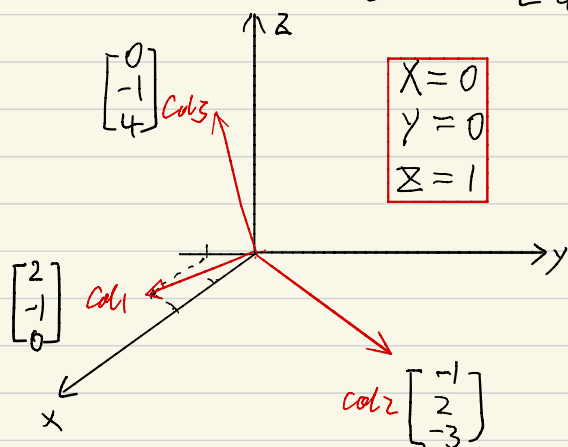 z
[0
-1
4]
col3
X = 0
Y = 0
Z = 1
y
[2
-1
0]
col1
x
col2
[-1
2
-3]